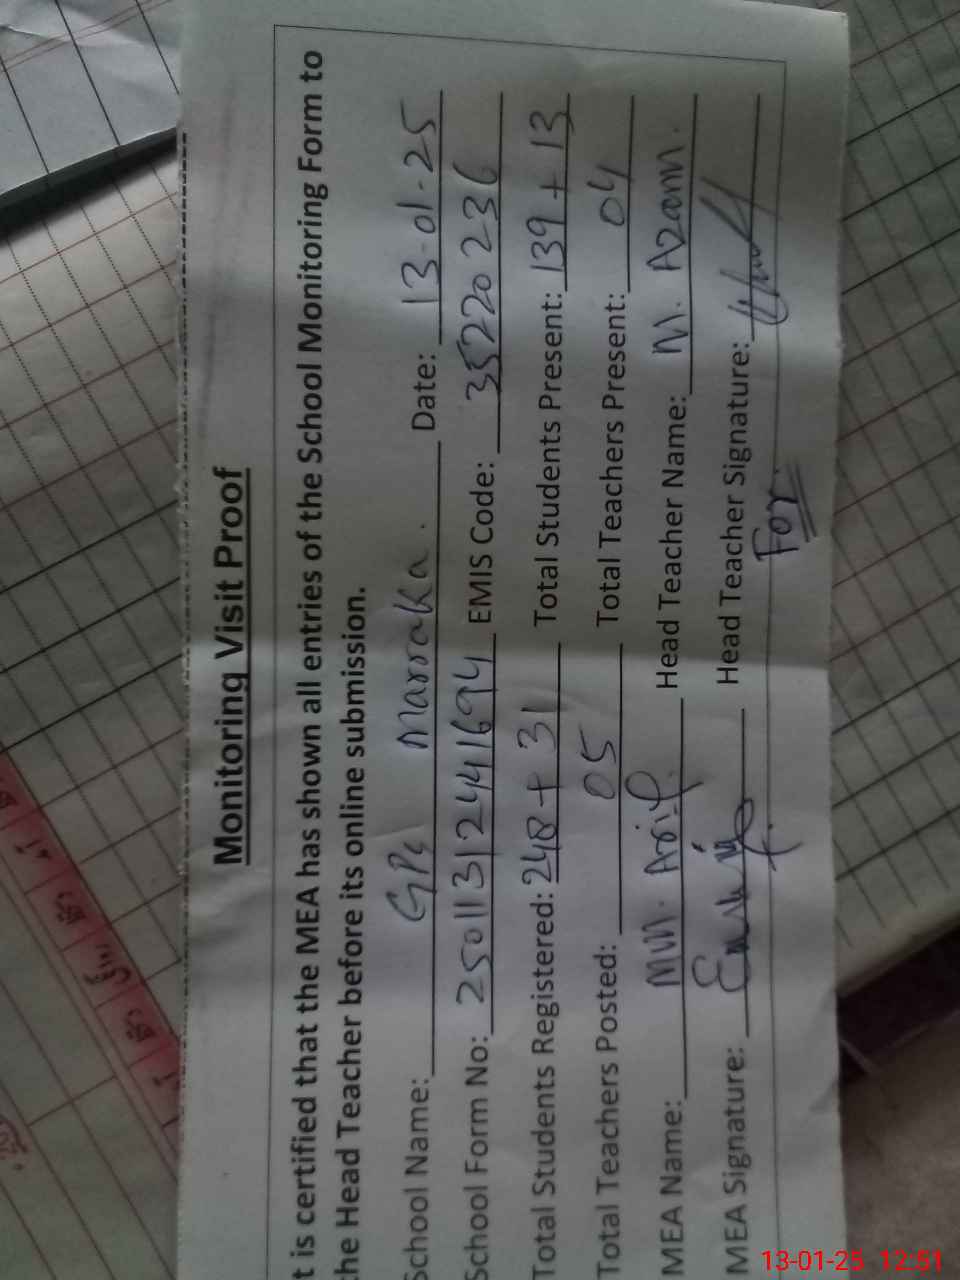 Monitoring Visit Proof
t is certified that the MEA has shown all entries of the School Monitoring Form to
the Head Teacher before its online submission.
School Name: GPS Marraka. Date: 13-01-25
School Form No: 25011312441694 EMIS Code: 35220236
Total Students Registered: 248 + 31 Total Students Present: 139 + 13
Total Teachers Posted: 05 Total Teachers Present: 04
MEA Name: Arif Head Teacher Name: M. Azam.
MEA Signature: Head Teacher Signature:
For
13-01-25 12:51